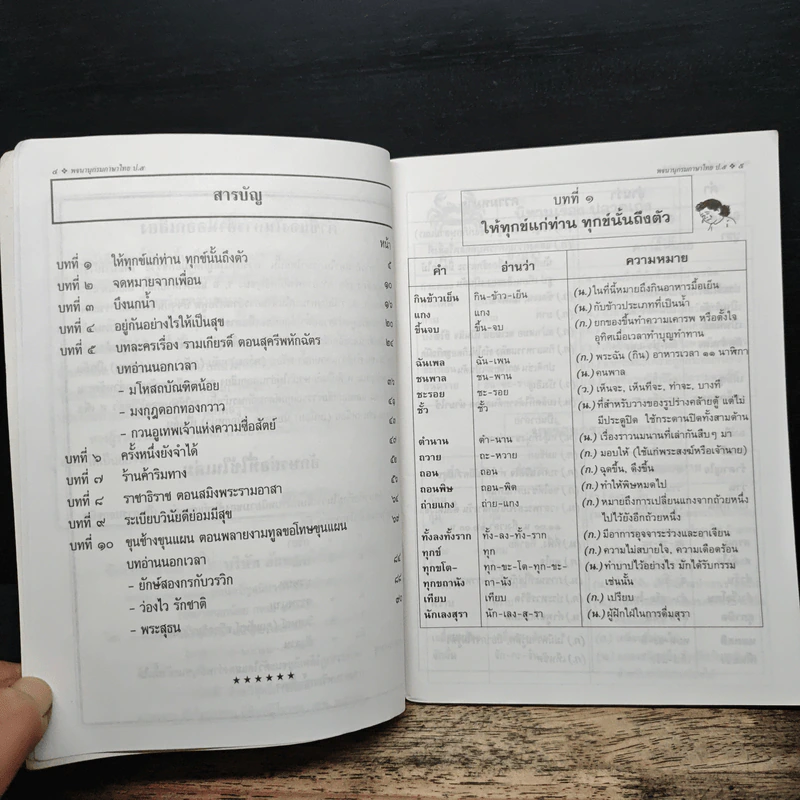 ๔ ❖ พจนานุกรมภาษาไทย ป.๕
สารบัญ
หน้า
บทที่ ๑ ให้ทุกข์แก่ท่าน ทุกข์นั้นถึงตัว ๕
บทที่ ๒ จดหมายจากเพื่อน ๑๐
บทที่ ๓ บึงนกน้ำ ๑๖
บทที่ ๔ อยู่กันอย่างไรให้เป็นสุข ๒๐
บทที่ ๕ บทละครเรื่อง รามเกียรติ์ ตอนสุครีพหักฉัตร ๒๔
บทอ่านนอกเวลา
– มโหสถบัณฑิตน้อย ๓๖
– มงกุฎดอกทองกวาว
– กวนอูเทพเจ้าแห่งความซื่อสัตย์
บทที่ ๖ ครั้งหนึ่งยังจำได้
บทที่ ๗ ร้านค้าริมทาง
บทที่ ๘ ราชาธิราช ตอนสมิงพระรามอาสา
บทที่ ๙ ระเบียบวินัยดีย่อมมีสุข
บทที่ ๑๐ ขุนช้างขุนแผน ตอนพลายงามทูลขอโทษขุนแผน
บทอ่านนอกเวลา
– ยักษ์สองกรกับวรวิก
– ว่องไว รักชาติ
– พระสุธน
★★★★★★
พจนานุกรมภาษาไทย ป.๕ ❖ ๕
บทที่ ๑
ให้ทุกข์แก่ท่าน ทุกข์นั้นถึงตัว
คำ อ่านว่า ความหมาย
กินข้าวเย็น กิน-ข้าว-เย็น (น.) ในที่นี้หมายถึงกินอาหารมื้อเย็น
แกง แกง (น.) กับข้าวประเภทที่เป็นน้ำ
ขึ้นจบ ขึ้น-จบ (ก.) ยกของขึ้นทำความเคารพ หรือตั้งใจ
อุทิศเมื่อเวลาทำบุญทำทาน
ฉันเพล ฉัน-เพน (ก.) พระฉัน (กิน) อาหารเวลา ๑๑ นาฬิกา
ชนพาล ชน-พาน (น.) คนพาล
ชะรอย ชะ-รอย (ว.) เห็นจะ, เห็นทีจะ, ท่าจะ, บางที
ชั้ว ชั้ว (น.) ที่สำหรับวางของรูปร่างคล้ายตู้ แต่ไม่
มีประตูปิด ใช้กระดานปิดทั้งสามด้าน
ตำนาน ตำ-นาน (น.) เรื่องราวนมนานที่เล่ากันสืบๆ มา
ถวาย ถะ-หวาย (ก.) มอบให้ (ใช้แก่พระสงฆ์หรือเจ้านาย)
ถอน ถอน (ก.) ฉุดขึ้น, ดึงขึ้น
ถอนพิษ ถอน-พิด (ก.) ทำให้พิษหมดไป
ถ่ายแกง ถ่าย-แกง (ก.) หมายถึงการเปลี่ยนแกงจากถ้วยหนึ่ง
ไปไว้ยังอีกถ้วยหนึ่ง
ทั้งลงทั้งราก ทั้ง-ลง-ทั้ง-ราก (ก.) มีอาการอุจจาระร่วงและอาเจียน
ทุกข์ ทุก (น.) ความไม่สบายใจ, ความเดือดร้อน
ทุกขโต- ทุก-ขะ-โต-ทุก-ขะ- (น.) ทำบาปไว้อย่างไร มักได้รับกรรม
ทุกขถานัง ถา-นัง เช่นนั้น
เทียบ เทียบ (ก.) เปรียบ
นักเลงสุรา นัก-เลง-สุ-รา (น.) ผู้ฝักใฝ่ในการดื่มสุรา